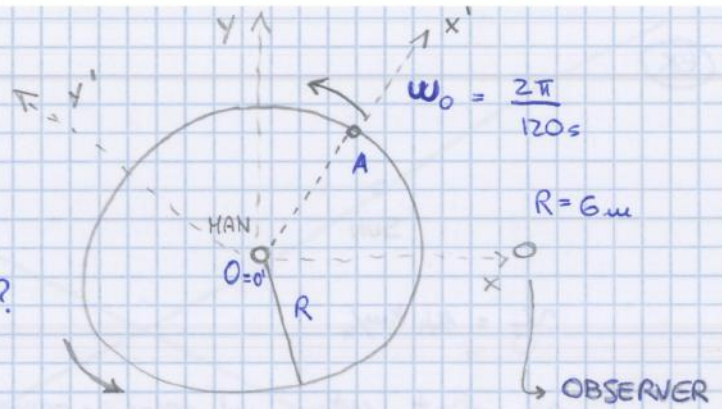 Y
x'
y'
ω₀ = 2π / 120s
A
R = 6 m
MAN
O=O'
x
?
R
OBSERVER